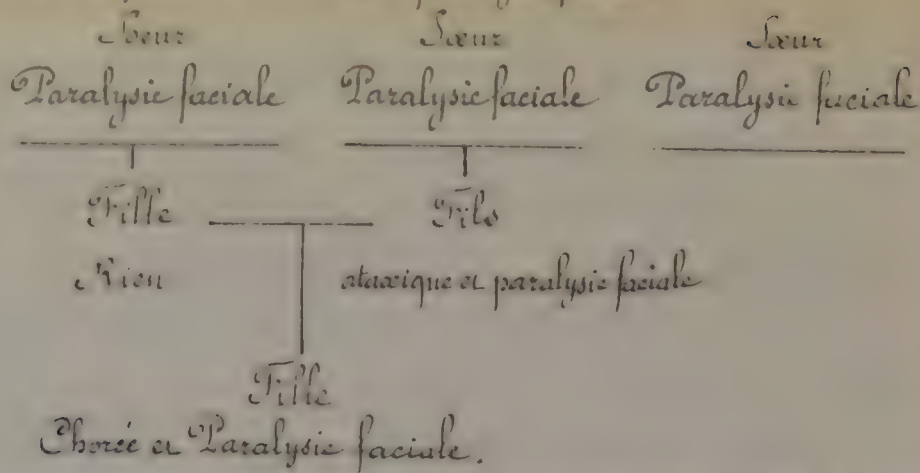 Sœur Sœur Sœur
Paralysie faciale Paralysie faciale Paralysie faciale
Fille Fils
Rien ataxique et paralysie faciale
Fille
Chorée et Paralysie faciale.